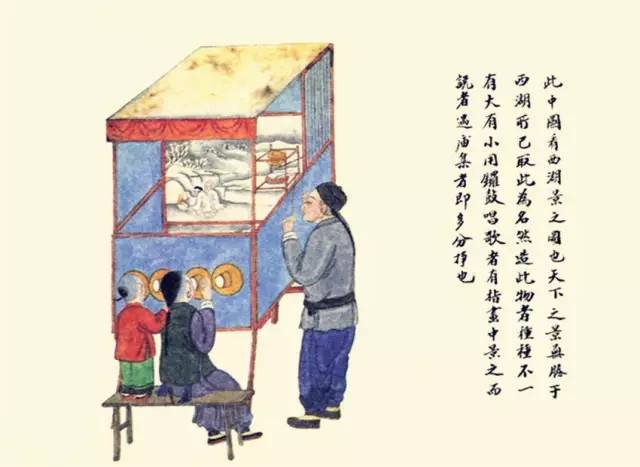 此中國看西湖景之圖也天下之景無勝于
西湖所已取此為名然造此物者種種不一
有大有小用鑼鼓唱歌者有指畫中景之而
説者遇庙集者即多分掙也